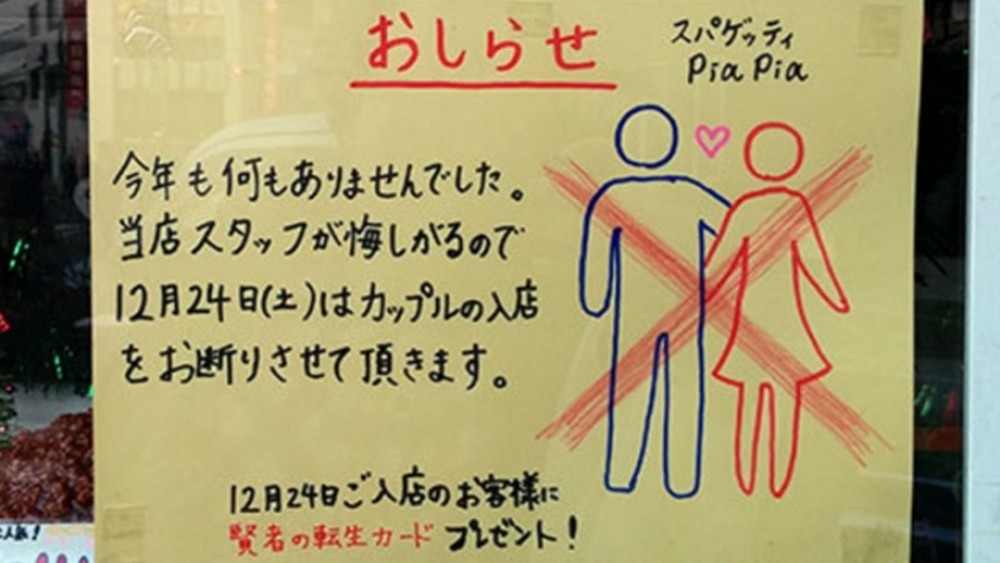 おしらせ
スパゲッティ
Pia Pia
今年も何もありませんでした。
当店スタッフが悔しがるので
12月24日(土)はカップルの入店
をお断りさせて頂きます。
12月24日ご入店のお客様に
賢者の転生カード プレゼント!